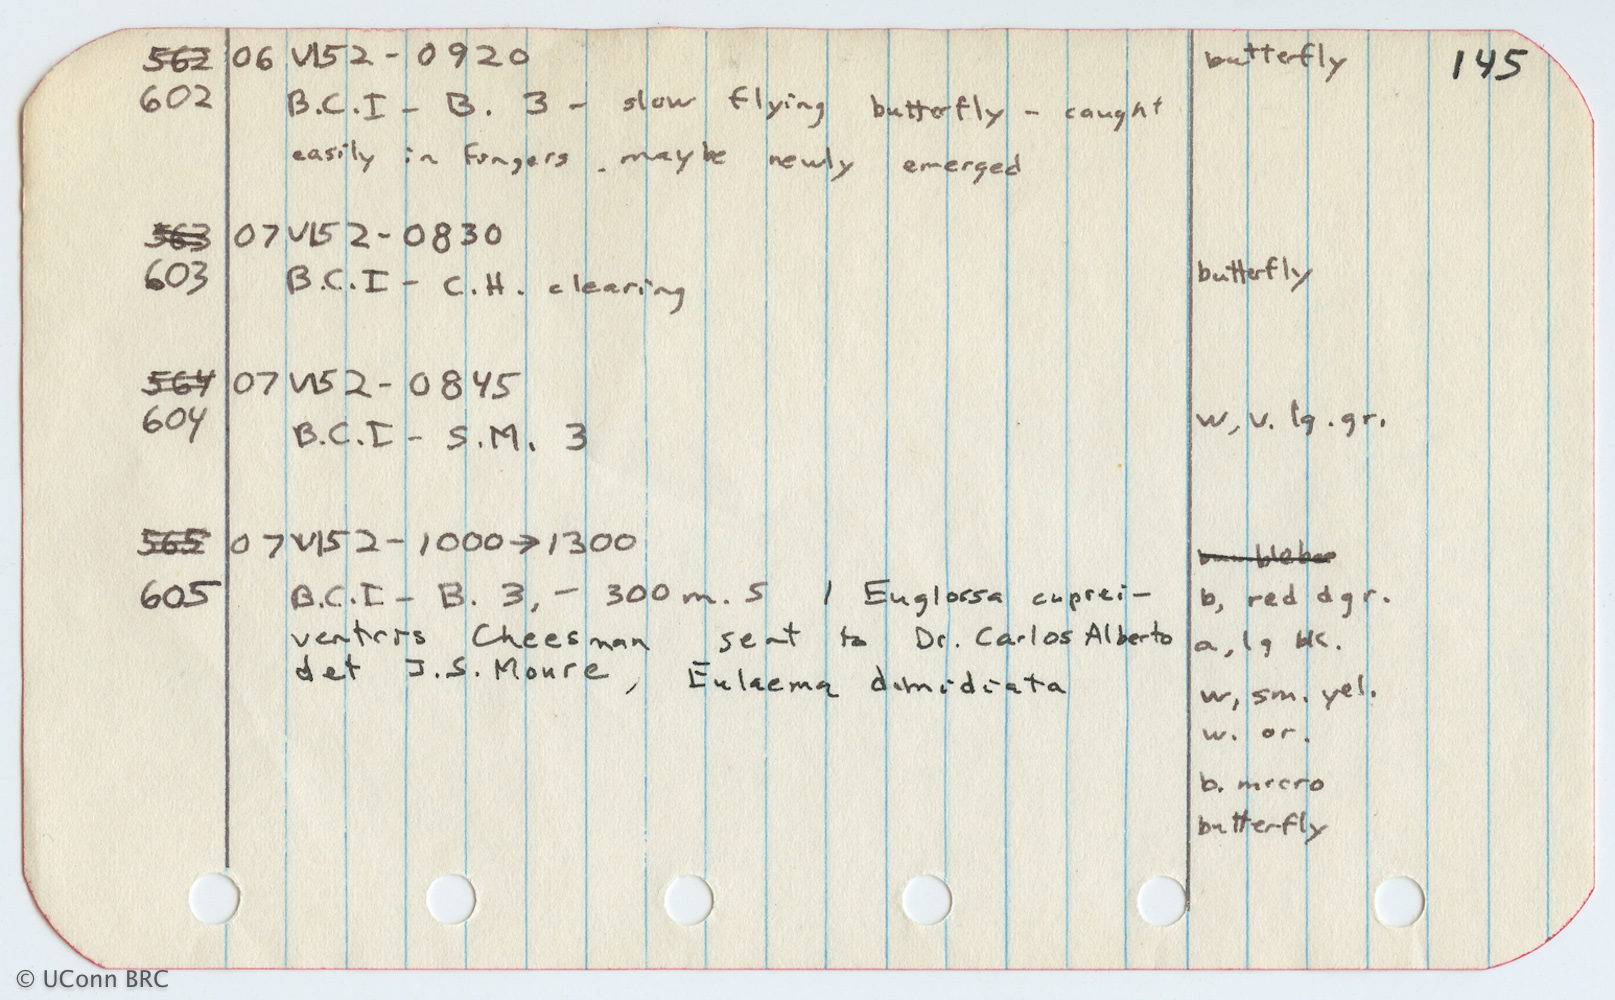 562 06 VI52 - 0920 butterfly 145
602 B.C.I - B. 3 - slow flying butterfly - caught
easily in fingers. maybe newly emerged
563 07 VI52 - 0830
603 B.C.I - C.H. clearing butterfly
564 07 VI52 - 0845
604 B.C.I - S.M. 3 w, v. lg. gr.
565 07 VI52 - 1000 → 1300
605 B.C.I - B. 3, - 300 m. S 1 Euglossa cuprei- b, red d gr.
ventris Cheesman sent to Dr. Carlos Alberto a, lg bk.
det J.S. Moure, Eulaema dimidiata
w, sm. yel.
w. or.
b. micro
butterfly
© UConn BRC